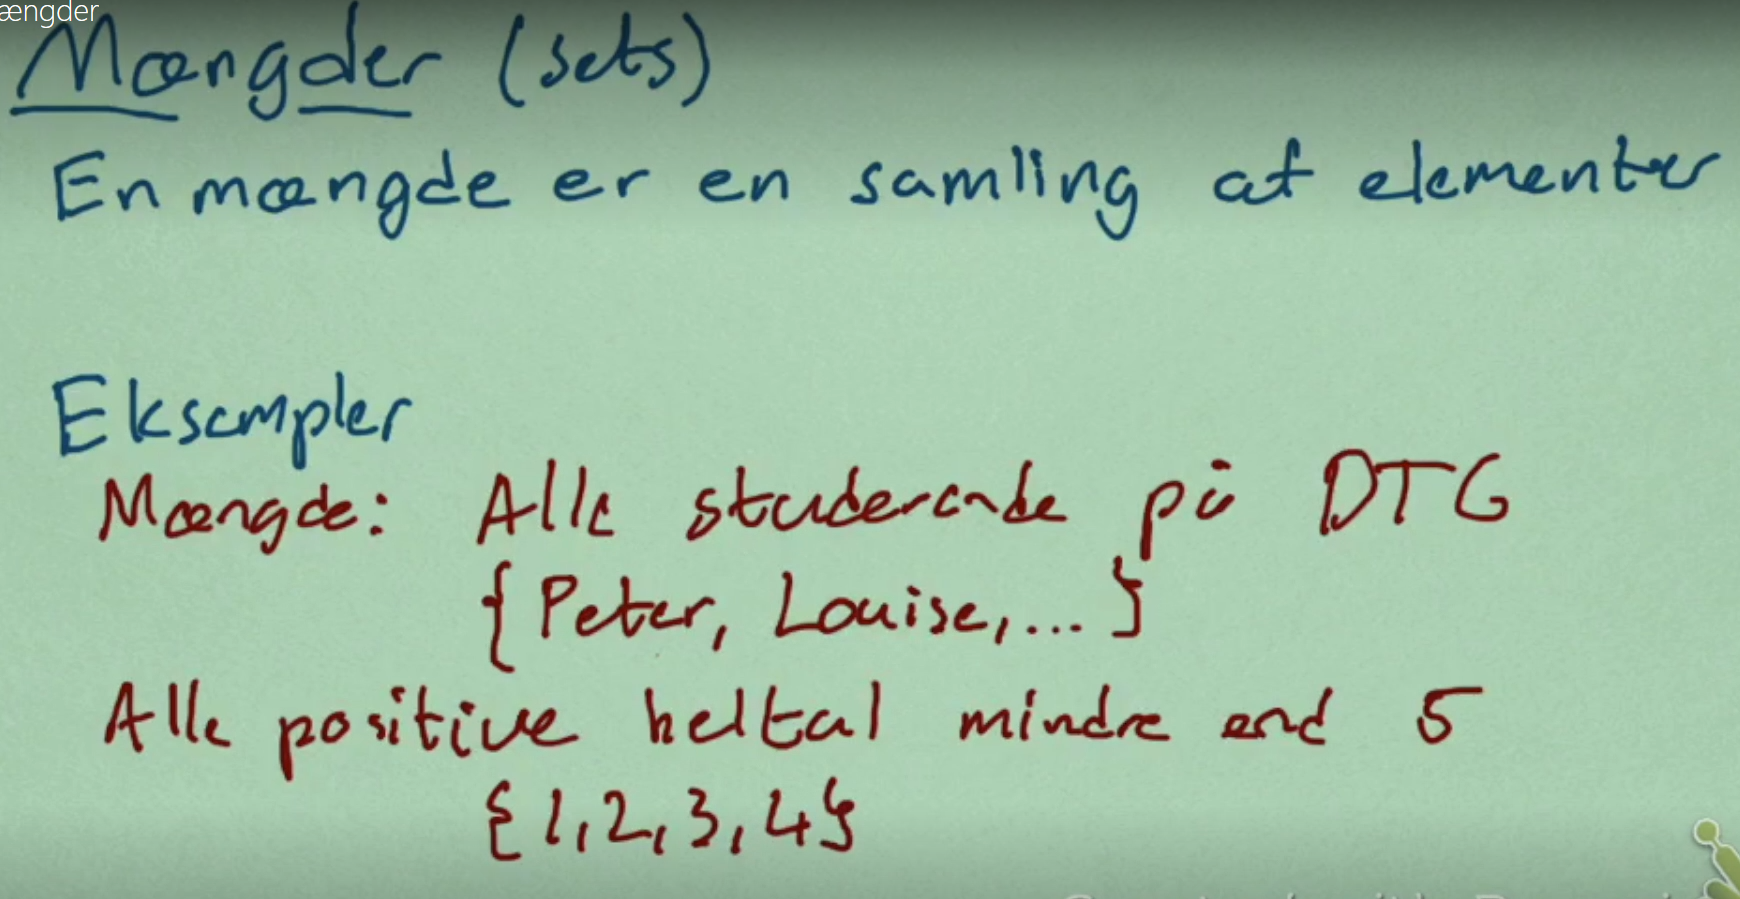 ængder
Mængder (sets)
En mængde er en samling af elementer
Eksempler
Mængde: Alle studerende på DTG
{Peter, Louise,...}
Alle positive heltal mindre end 5
{1,2,3,4}